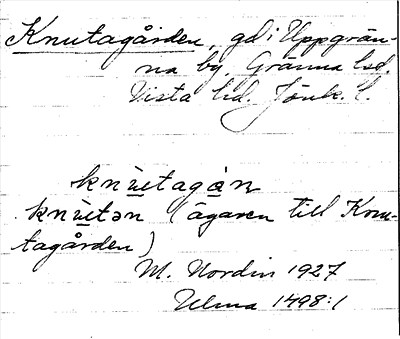 Knutagården, gd i Uppgrän-
na by, Gränna lsd.
Vista hd. Jönk. l.
knùtagán
knùtən (ägaren till Knu-
tagården)
M. Nordin 1927
Ulma 1498:1